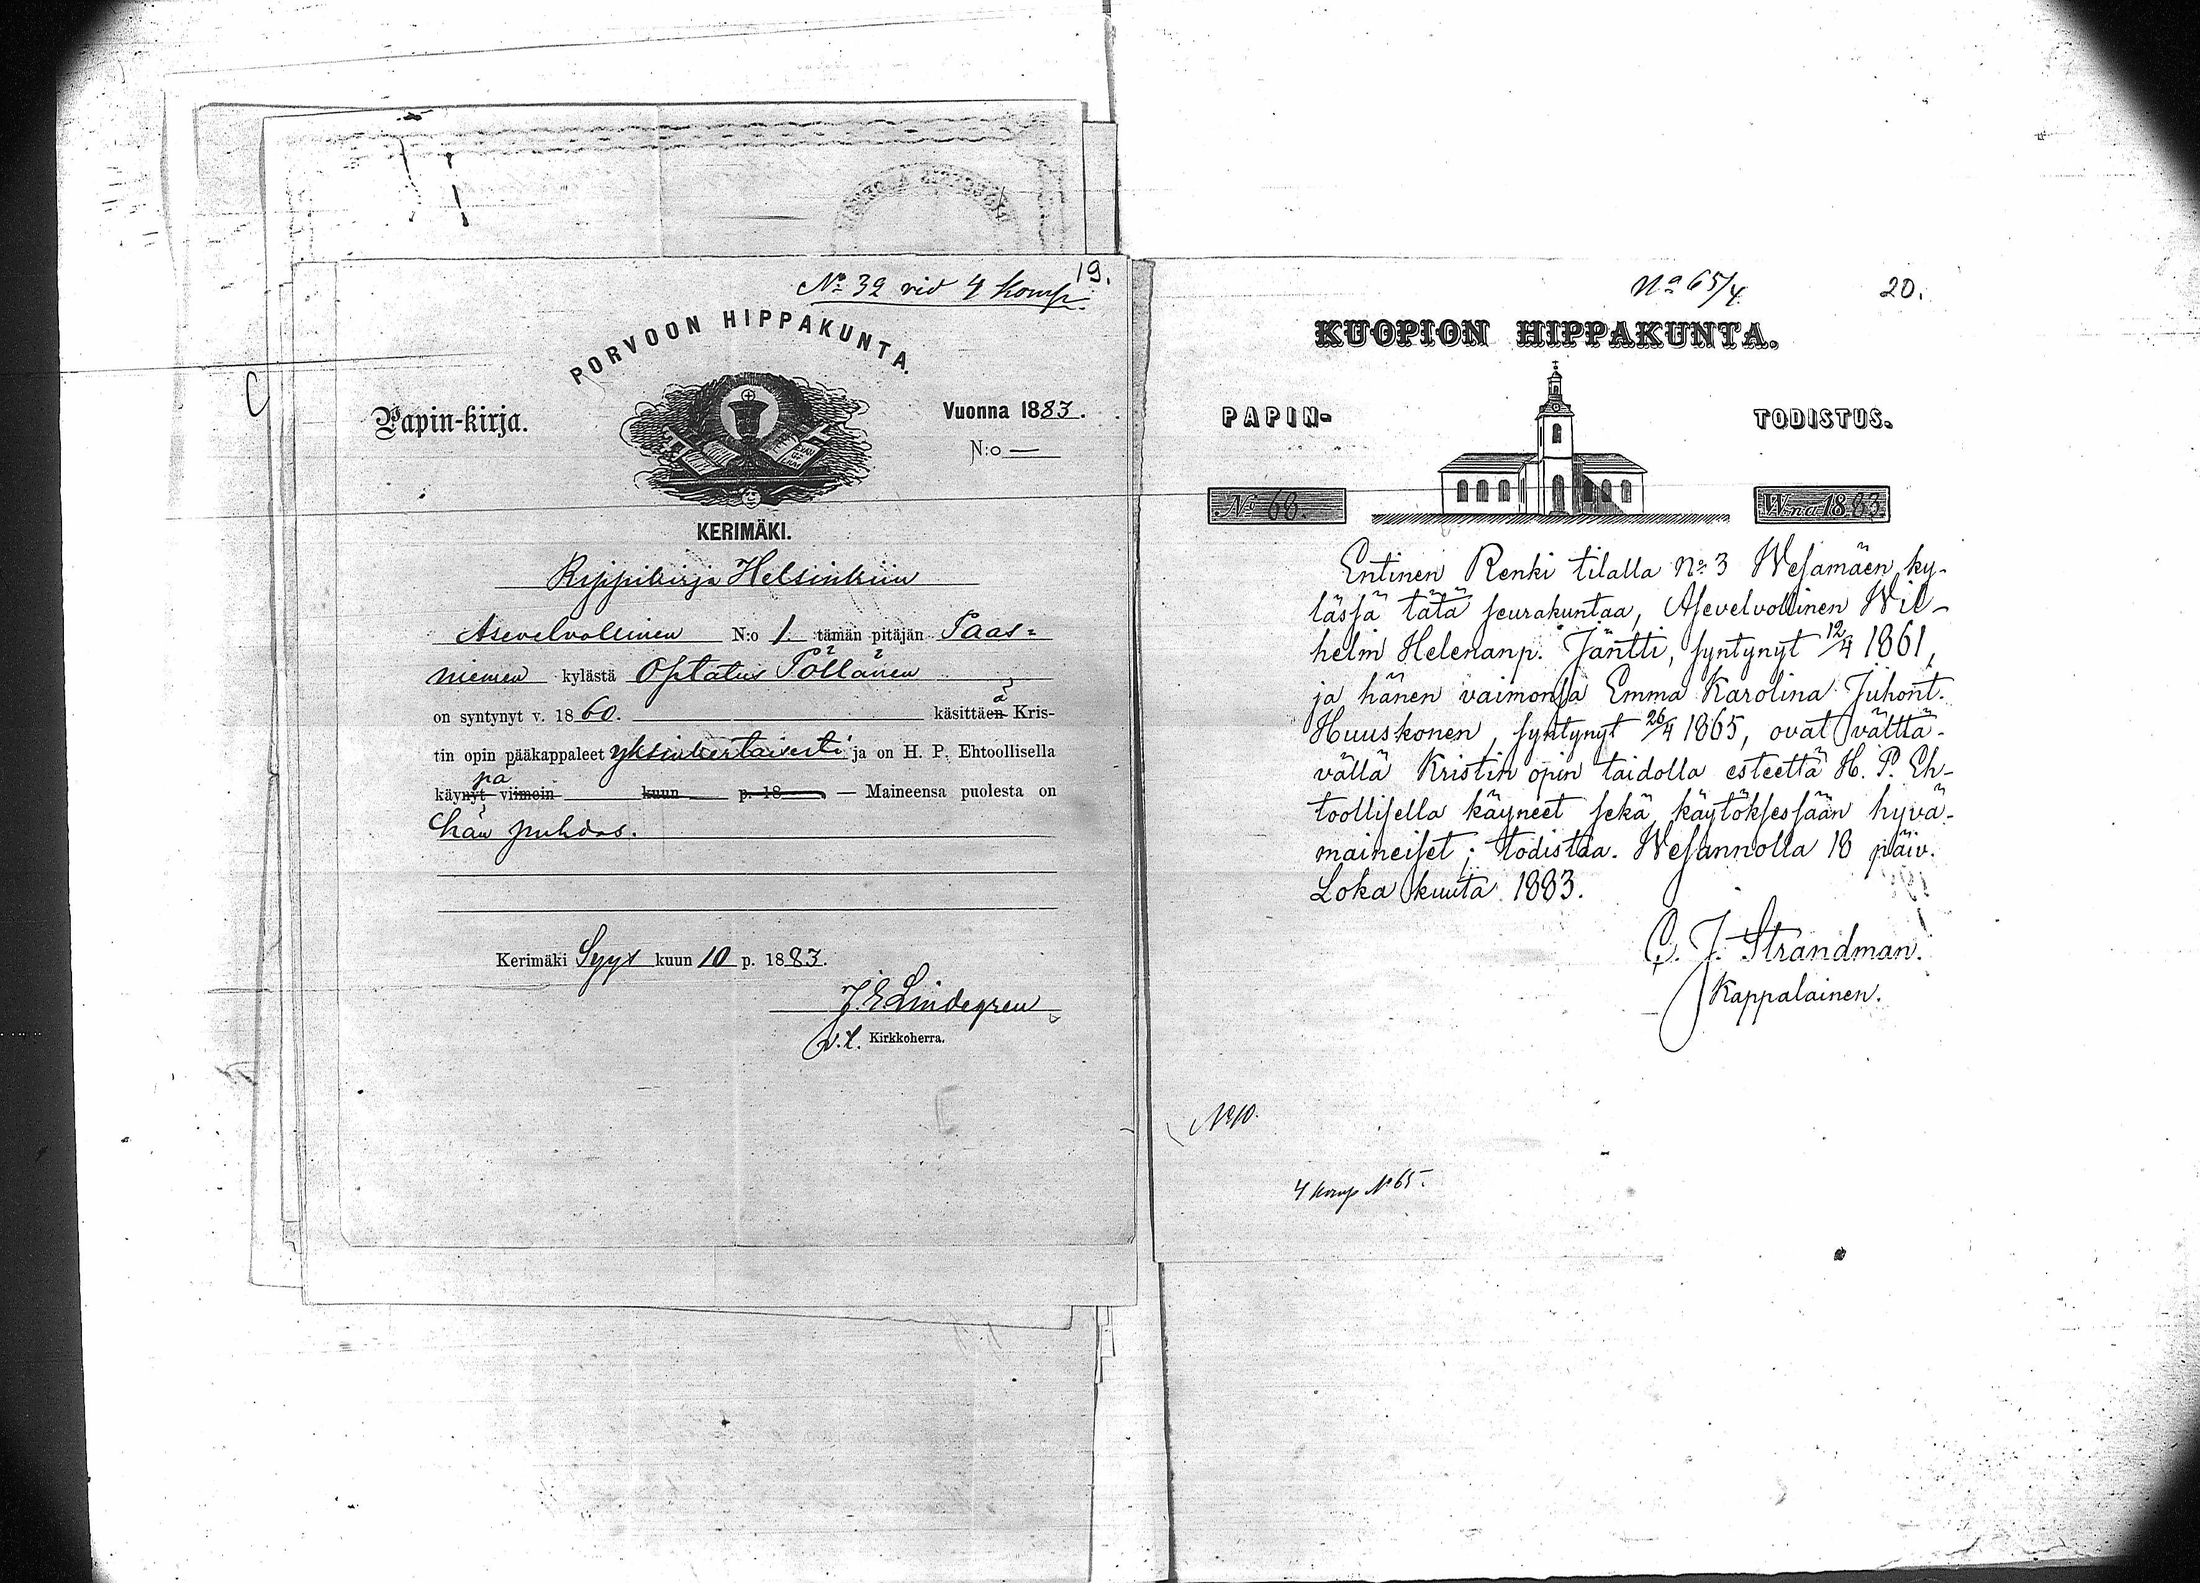 19.
No 32 vid 4 Komp.
PORVOON HIPPAKUNTA.
Papin-kirja.
Vuonna 1883.
N:o —
KERIMÄKI.
Rippikirja Helsinkiin
Asevelvollinen N:o 1. tämän pitäjän Paas=
niemen kylästä Optatus Pöllänen
on syntynyt v. 1860. käsittää Kris-
tin opin pääkappaleet yksinkertaisesti ja on H. P. Ehtoollisella
käypä viimein kuun p. 18 — Maineensa puolesta on
hän puhdas.
Kerimäki Syys kuun 10 p. 1883.
J. E. Lindegren
v.t. Kirkkoherra.
No 65/4
20.
KUOPION HIPPAKUNTA.
PAPIN- TODISTUS.
No 68. Wna 1883.
Entinen Renki tilalla No 3 Wesamäen ky-
lässä tätä seurakuntaa, Asevelvollinen Wil-
helm Helenanp. Jäntti, syntynyt 12/4 1861,
ja hänen vaimonsa Emma Karolina Juhont.
Huuskonen, syntynyt 26/4 1865, ovat välttä-
vällä Kristin opin taidolla esteettä H. P. Eh-
toollisella käyneet sekä käytöksessään hyvä-
maineiset; todistaa. Wesannolla 18 päiv.
Loka kuuta 1883.
C. J. Strandman.
Kappalainen.
No 10.
4 Komp No 65.